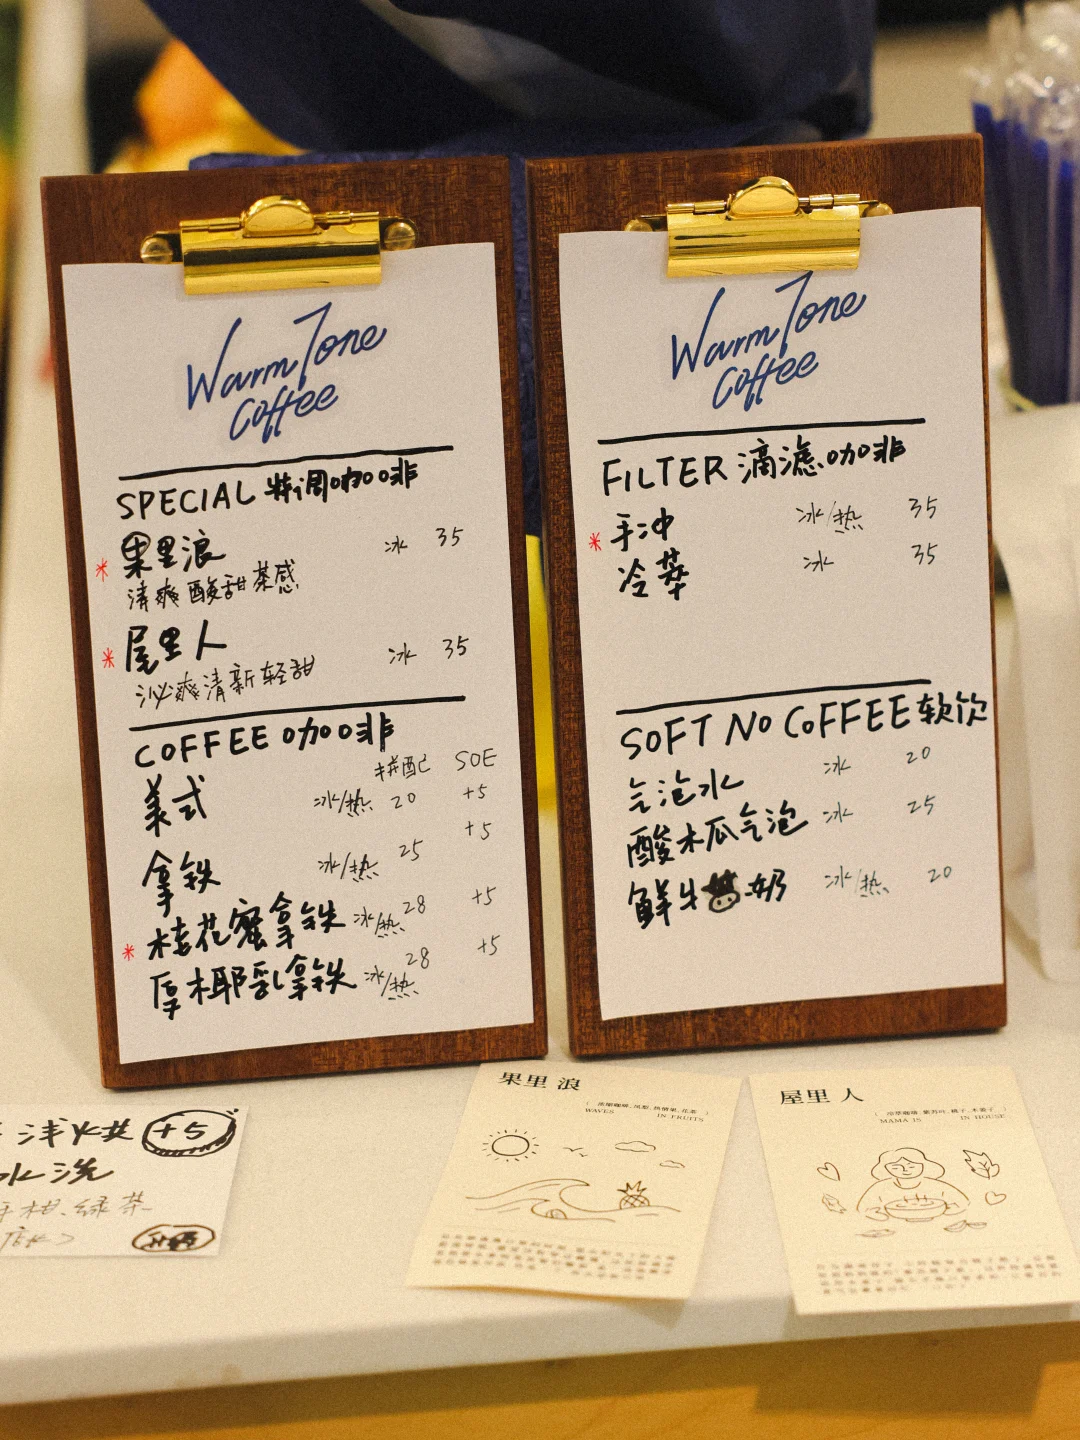 Warm Tone
Coffee
SPECIAL 特调咖啡
果里浪 冰 35
清爽酸甜茶感
屋里人 冰 35
沁爽清新轻甜
COFFEE 咖啡
拼配 SOE
美式 冰/热 20 +5
拿铁 冰/热 25 +5
桂花蜜拿铁 冰/热 28 +5
厚椰乳拿铁 冰/热 28 +5
Warm Tone
Coffee
FILTER 滴滤咖啡
手冲 冰/热 35
冷萃 冰 35
SOFT NO COFFEE 软饮
气泡水 冰 20
酸木瓜气泡 冰 25
鲜牛奶 冰/热 20
浅烘 +5
水洗
柑、绿茶
果里 浪
WAVES IN FRUITS
屋里 人
MAMA IS IN HOUSE